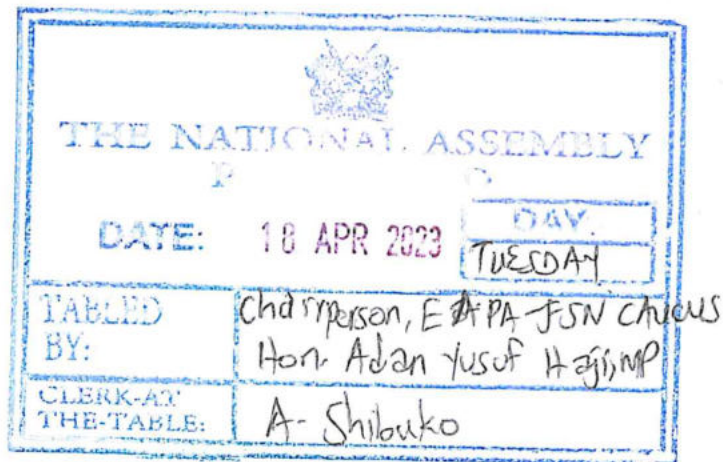 THE NATIONAL ASSEMBLY
DATE: 18 APR 2023
DAY.
TUESDAY
TABLED BY:
Chairperson, EAPA-FSN CAUCUS
Hon. Adan Yusuf Haji, MP
CLERK-AT THE-TABLE:
A- Shibuko